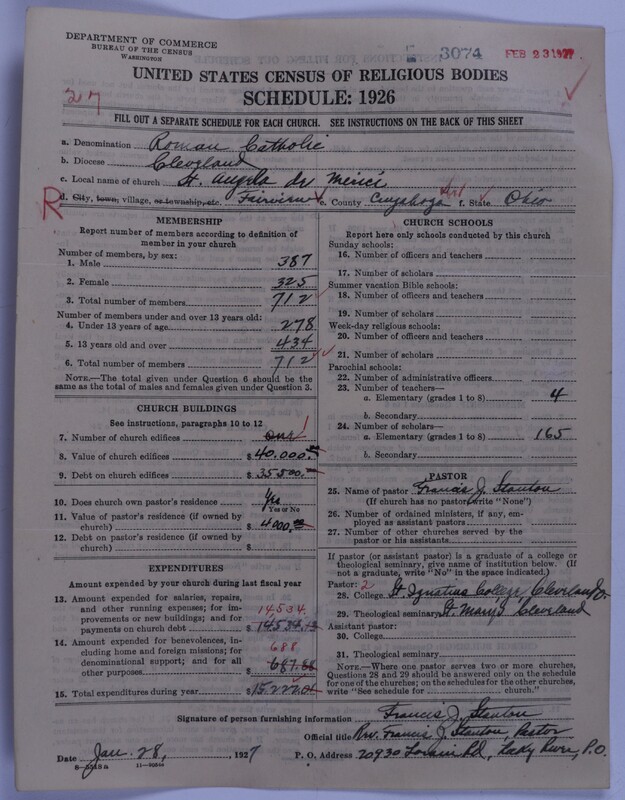 DEPARTMENT OF COMMERCE
BUREAU OF THE CENSUS
WASHINGTON
3074
FEB 23 1927
UNITED STATES CENSUS OF RELIGIOUS BODIES
SCHEDULE: 1926
27
FILL OUT A SEPARATE SCHEDULE FOR EACH CHURCH. SEE INSTRUCTIONS ON THE BACK OF THIS SHEET
a. Denomination Roman Catholic
b. Diocese Cleveland
c. Local name of church St. Angela de Merici
R d. City, town, village, or township, etc. Fairview e. County Cuyahoga f. State Ohio
MEMBERSHIP
Report number of members according to definition of
member in your church
Number of members, by sex:
1. Male 387
2. Female 325
3. Total number of members 712
Number of members under and over 13 years old:
4. Under 13 years of age 278
5. 13 years old and over 434
6. Total number of members 712
NOTE.—The total given under Question 6 should be
the same as the total of males and females given under Question 3.
CHURCH BUILDINGS
See instructions, paragraphs 10 to 12
7. Number of church edifices one 1
8. Value of church edifices $ 40,000.
9. Debt on church edifices $ 35500.
10. Does church own pastor's residence Yes
Yes or No
11. Value of pastor's residence (if owned by
church) $ 4000.
12. Debt on pastor's residence (if owned by
church) $
EXPENDITURES
Amount expended by your church during last fiscal year
13. Amount expended for salaries, repairs,
and other running expenses; for im-
provements or new buildings; and for
payments on church debt 14,534. $ 14534.13
14. Amount expended for benevolences,
including home and foreign missions; for
denominational support; and for all
other purposes 688 $ 687.88
15. Total expenditures during year $ 15.222.01
CHURCH SCHOOLS
Report here only schools conducted by this church
Sunday schools:
16. Number of officers and teachers
17. Number of scholars
Summer vacation Bible schools:
18. Number of officers and teachers
19. Number of scholars
Week-day religious schools:
20. Number of officers and teachers
21. Number of scholars
Parochial schools:
22. Number of administrative officers
23. Number of teachers—
a. Elementary (grades 1 to 8) 4
b. Secondary
24. Number of scholars—
a. Elementary (grades 1 to 8) 165
b. Secondary
PASTOR
25. Name of pastor Francis J. Stanton
(If church has no pastor, write "None")
26. Number of ordained ministers, if any, em-
ployed as assistant pastors
27. Number of other churches served by the
pastor or his assistants
If pastor (or assistant pastor) is a graduate of a college or
theological seminary, give name of institution below. (If
not a graduate, write "No" in the space indicated.)
Pastor: 2
28. College St. Ignatius College, Cleveland O.
29. Theological seminary St. Mary's Cleveland
Assistant pastor:
30. College
31. Theological seminary
NOTE.—Where one pastor serves two or more churches,
Questions 28 and 29 should be answered only on the schedule
for one of the churches; on the schedules for the other churches,
write "See schedule for church."
Signature of person furnishing information Francis J. Stanton
Official title Rev. Francis J. Stanton, Pastor
Date Jan. 28, 1927 P. O. Address 20930 Lorain Rd, P.O.